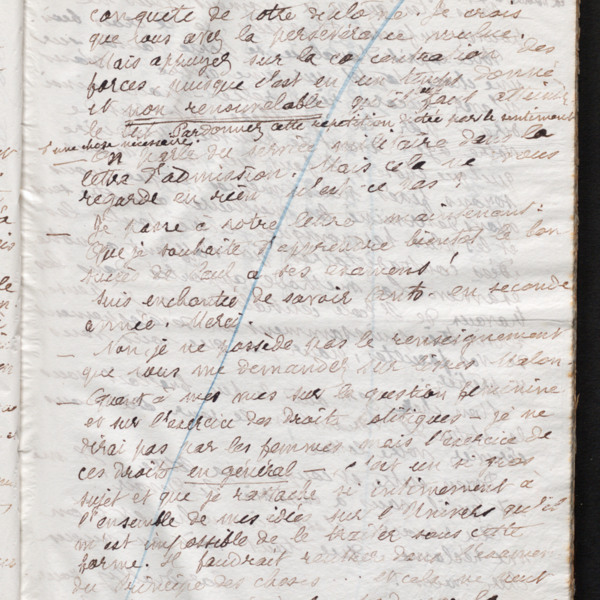 conquête de votre diplôme. Je crois
que vous avez la persévérance voulue.
Mais appuyez sur la concentration des
forces puisque c'est en un temps donné
et non renouvelable qu'il faut atteindre
le but. Pardonnez cette répétition dictée par le sentiment
d'une chose nécessaire.
— On parle du service militaire dans la
lettre d'admission. Mais cela ne vous
regarde en rien n'est ce pas ?
— Je passe à votre lettre maintenant :
Que je souhaite d'apprendre bientôt le bon
succès de Paul à ses examens !
suis enchantée de savoir en seconde
année. Merci.
— Non je ne possède pas le renseignement
que vous me demandez sur
— Quant à mes vues sur la question féminine
et sur l'exercice des droits politiques — je ne
dirai pas par les femmes mais l'exercice de
ces droits en général — c'est un si gros
sujet et que je rattache si intimement à
l'ensemble de mes idées sur l'Univers qu'il
m'est impossible de le traiter sous cette
forme. Il faudrait rentrer dans l'examen
du Principe des choses et cela ne peut